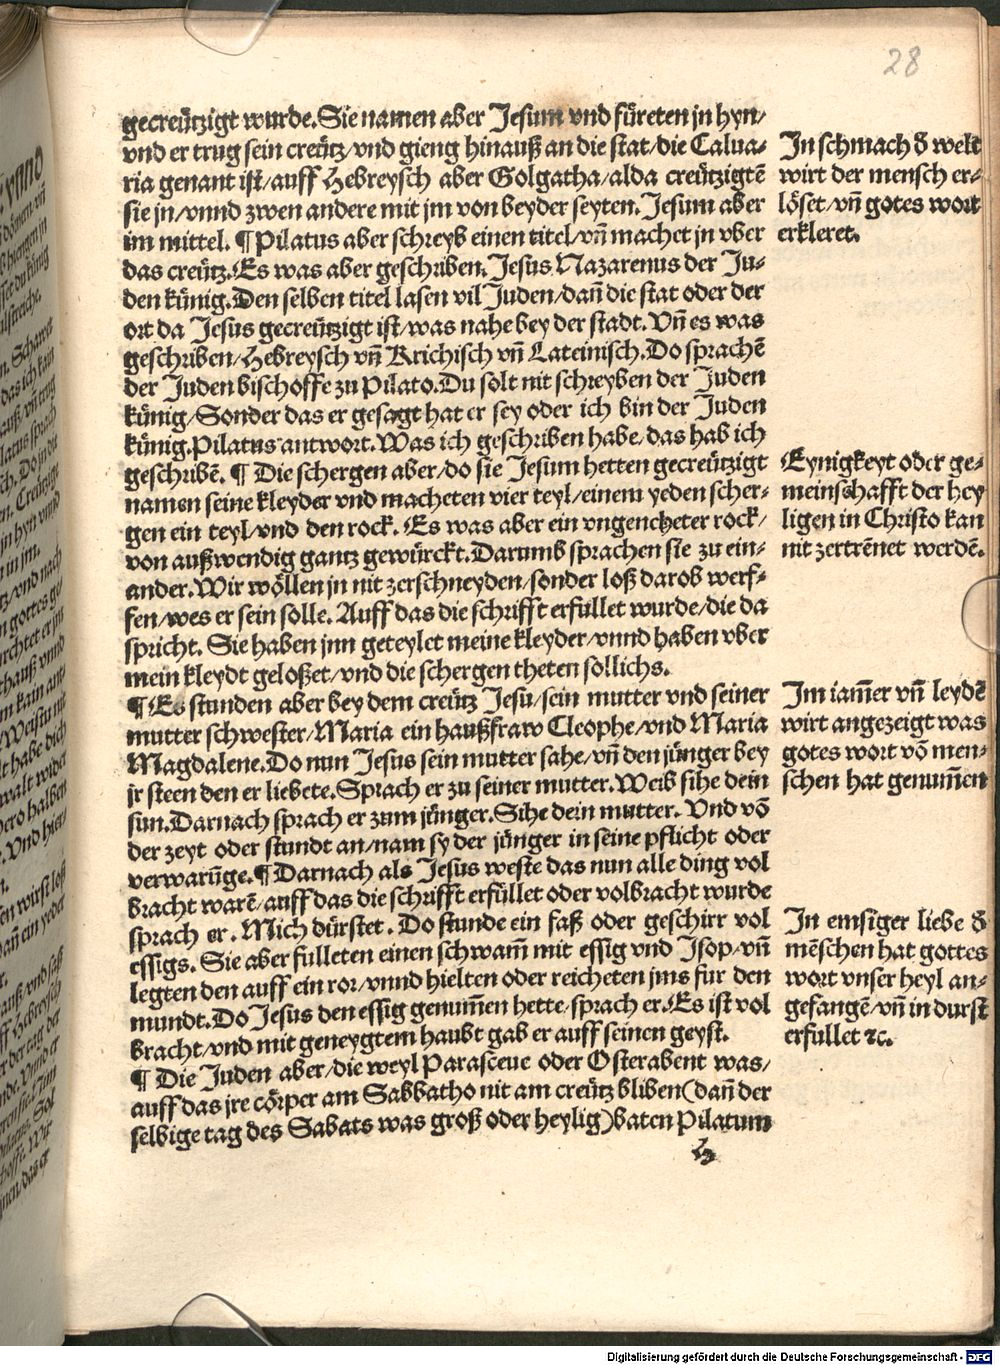 28
gecreützigt wurde. Sie namen aber Jesum vnd füreten jn hyn/
vnd er trug sein creütz/vnd gieng hinauß an die stat/die Calua-
ria genant ist/auff Hebreysch aber Golgatha/alda creützigtē
sie jn/vnnd zwen andere mit jm von beyder seyten. Jesum aber
im mittel. ¶ Pilatus aber schreyb einen titel/vñ machet jn vber
das creütz. Es was aber geschriben. Jesus Nazarenus der Ju-
den künig. Den selben titel lasen vil Juden/dañ die stat oder der
ort da Jesus gecreützigt ist/was nahe bey der stadt. Vñ es was
geschriben/Hebreysch vñ Krichisch vñ Lateinisch. Do sprachē
der Juden bischoffe zu Pilato. Du solt nit schreyben der Juden
künig/Sonder das er gesagt hat er sey oder ich bin der Juden
künig. Pilatus antwort. Was ich geschriben habe/das hab ich
geschribē. ¶ Die schergen aber/do sie Jesum hetten gecreützigt
namen seine kleyder vnd macheten vier teyl/einem yeden scher-
gen ein teyl/vnd den rock. Es was aber ein vngenetzeter rock/
von außwendig gantz gewürckt. Darumb sprachen sie zu ein-
ander. Wir wöllen jn nit zerschneyden/sonder loß darob werf-
fen/wes er sein solle. Auff das die schrifft erfüllet wurde/die da
spricht. Sie haben jnn geteylet meine kleyder/vnnd haben vber
mein kleydt geloßet/vnd die schergen theten sollichs.
¶ Es stunden aber bey dem creütz Jesu/sein mutter vnd seiner
mutter schwester/Maria ein haußfraw Cleophe/vnd Maria
Magdalene. Do nun Jesus sein mutter sahe/vñ den jünger bey
jr steen den er liebete. Sprach er zu seiner mutter. Weib sihe dein
sun. Darnach sprach er zum jünger. Sihe dein mutter. Vnd vō
der zeyt oder stundt an/nam sy der jünger in seine pflicht oder
verwarūge. ¶ Darnach als Jesus weste das nun alle ding vol
bracht warē/auff das die schrifft erfüllet oder volbracht wurde
sprach er. Mich dürstet. Do stunde ein faß oder geschirr vol
essigs. Sie aber fulleten einen schwam̄ mit essig vnd Isop/vñ
legten den auff ein ror/vnnd hielten oder reicheten jms für den
mundt. Do Jesus den essig genum̄en hette/sprach er. Es ist vol
bracht/vnd mit geneygtem haubt gab er auff seinen geyst.
¶ Die Juden aber/die weyl Parasceue oder Osterabent was/
auff das jre cörper am Sabbatho nit am creütz bliben (dañ der
selbige tag des Sabats was groß oder heylig) baten Pilatum
h
In schmach ð welt
wirt der mensch er-
löset/vñ gotes wort
erkleret.
Eynigkeyt oder ge-
meinschafft der hey
ligen in Christo kan
nit zertrēnet werdē.
Im iam̄er vñ leydē
wirt angezeigt was
gotes wort vō men-
schen hat genum̄en
In emsiger liebe ð
mēschen hat gottes
wort vnser heyl an-
gefangē/vñ in durst
erfullet ꝛc.
Digitalisierung gefördert durch die Deutsche Forschungsgemeinschaft - DFG